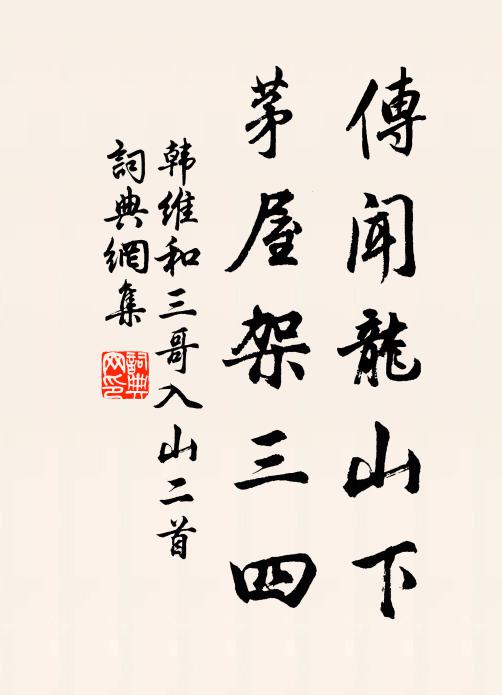 傳聞龍山下
茅屋架三四
韩维和三哥入山二首
詞典網集
詞典
网印